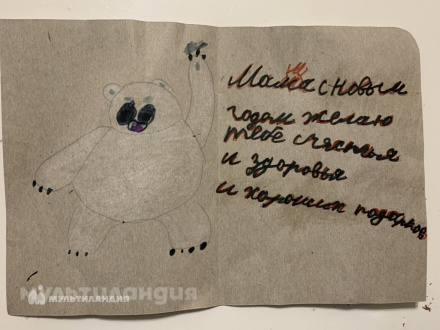 Мама с новым
годом желаю
тебе счястья
и здоровья
и хороших подарков
мультиландия
МУЛЬТИЛАНДИЯ